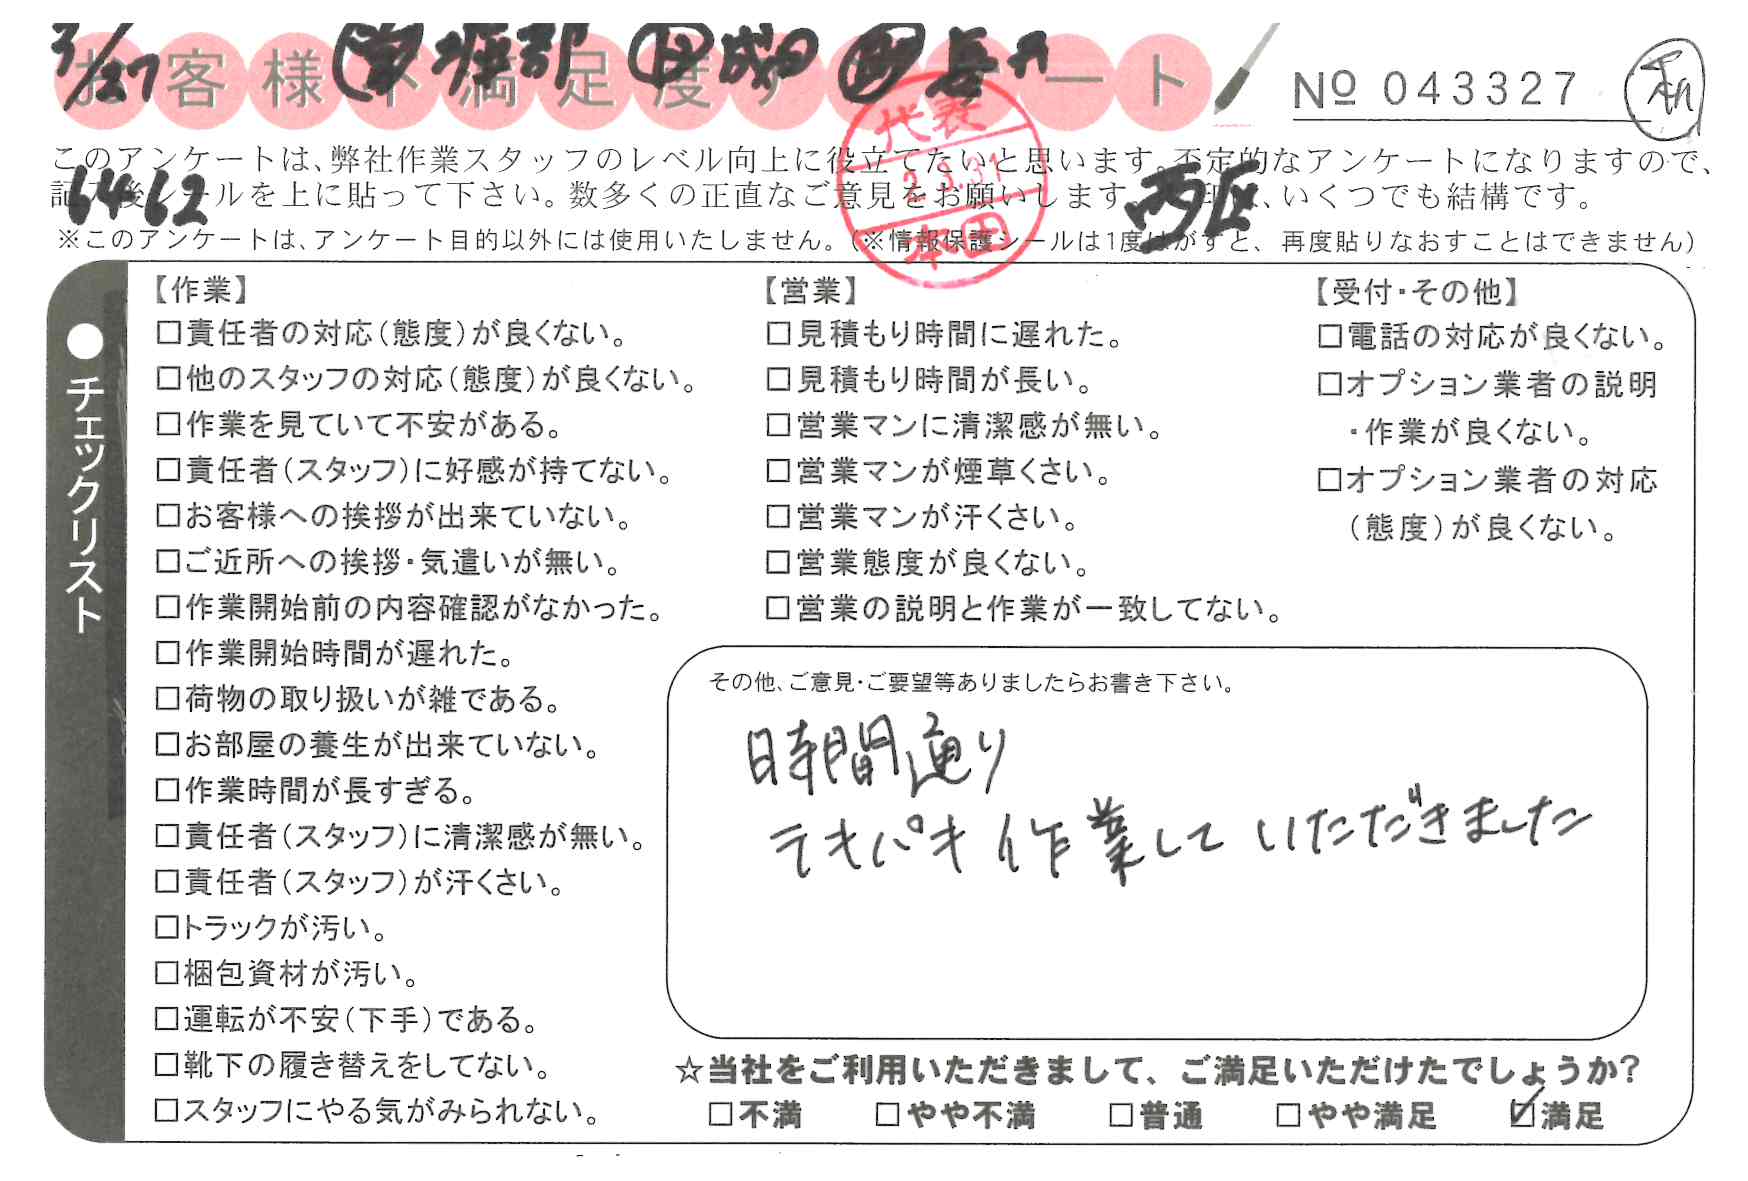 3/27 営 堀部 作 成田 助 長井
お客様不満足度アンケート
№ 043327
代表
2.3.31
本田
このアンケートは、弊社作業スタッフのレベル向上に役立てたいと思います。否定的なアンケートになりますので、
記入後シールを上に貼って下さい。数多くの正直なご意見をお願いします。、いくつでも結構です。
6462
西区
※このアンケートは、アンケート目的以外には使用いたしません。(※情報保護シールは1度はがすと、再度貼りなおすことはできません)
●チェックリスト
【作業】
□責任者の対応(態度)が良くない。
□他のスタッフの対応(態度)が良くない。
□作業を見ていて不安がある。
□責任者(スタッフ)に好感が持てない。
□お客様への挨拶が出来ていない。
□ご近所への挨拶・気遣いが無い。
□作業開始前の内容確認がなかった。
□作業開始時間が遅れた。
□荷物の取り扱いが雑である。
□お部屋の養生が出来ていない。
□作業時間が長すぎる。
□責任者(スタッフ)に清潔感が無い。
□責任者(スタッフ)が汗くさい。
□トラックが汚い。
□梱包資材が汚い。
□運転が不安(下手)である。
□靴下の履き替えをしてない。
□スタッフにやる気がみられない。
【営業】
□見積もり時間に遅れた。
□見積もり時間が長い。
□営業マンに清潔感が無い。
□営業マンが煙草くさい。
□営業マンが汗くさい。
□営業態度が良くない。
□営業の説明と作業が一致してない。
【受付・その他】
□電話の対応が良くない。
□オプション業者の説明
・作業が良くない。
□オプション業者の対応
(態度)が良くない。
その他、ご意見・ご要望等ありましたらお書き下さい。
時間通り
テキパキ作業していただきました
☆当社をご利用いただきまして、ご満足いただけたでしょうか?
□不満 □やや不満 □普通 □やや満足 ☑満足